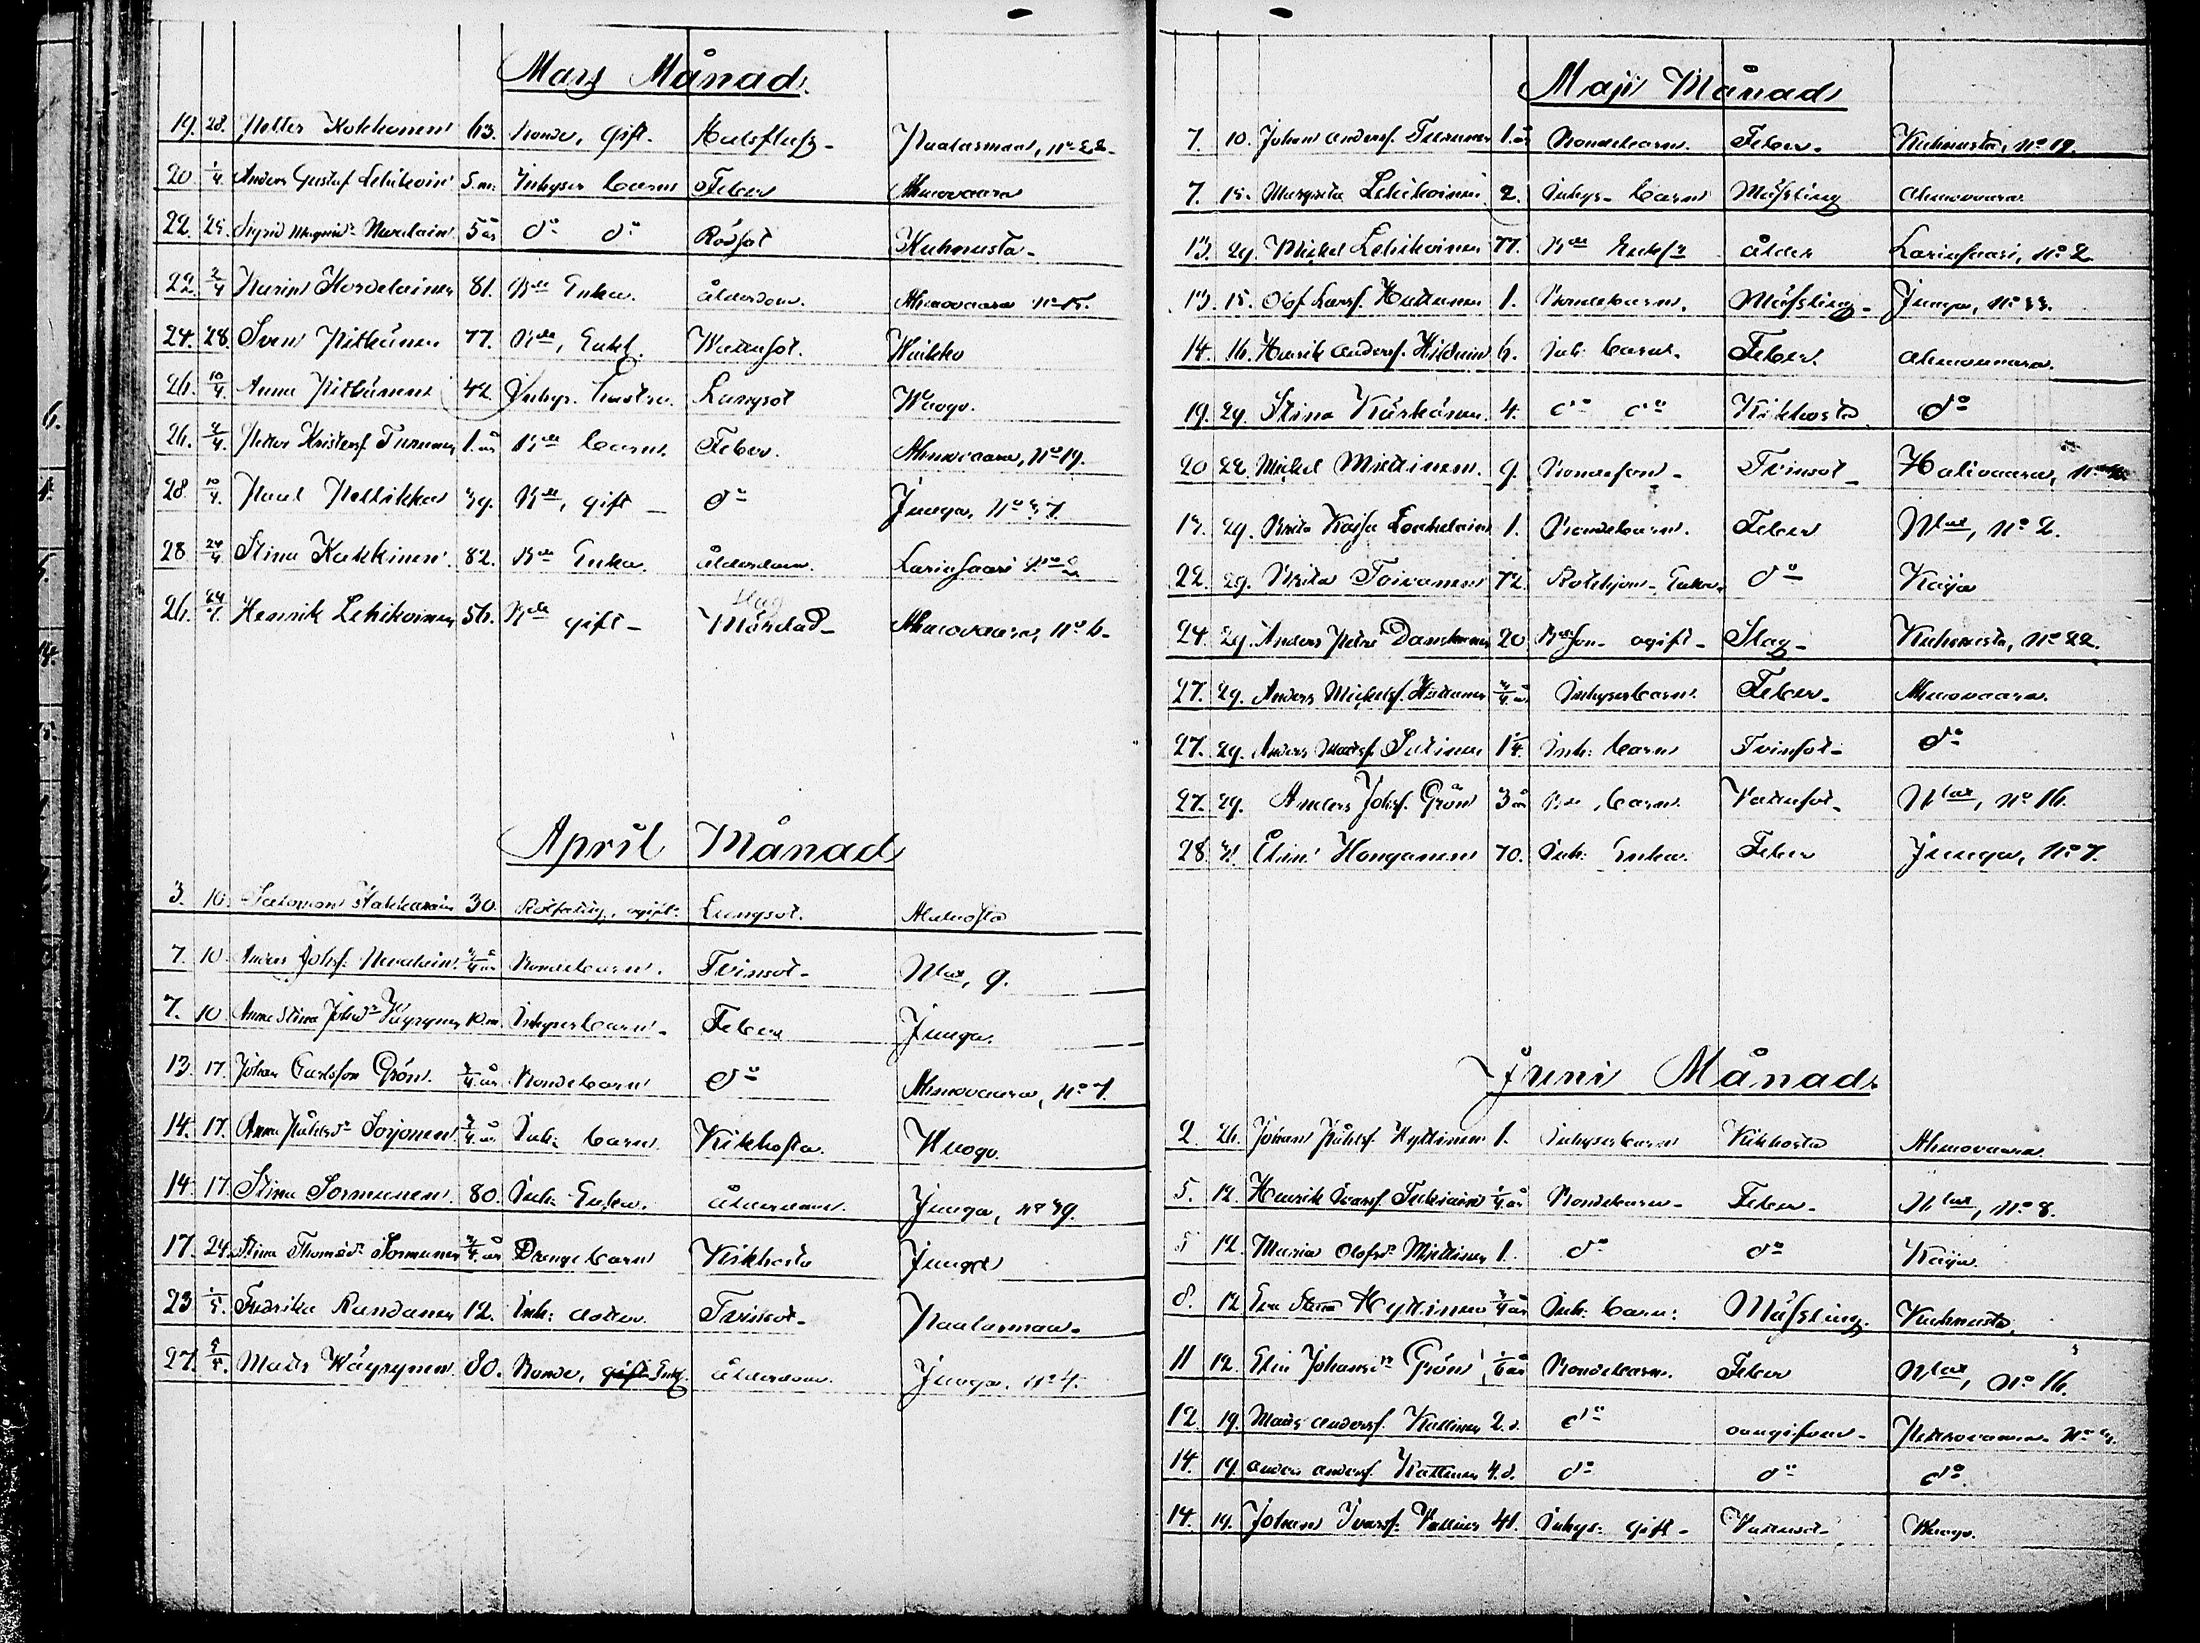 Mars Månad
19. 28. Petter Kokkonen 63. Bonde, gift. Halsfluss Haatasmaa, No 22.
20 1/4. Anders Gustaf Lehikoin 5.m: Inhyses barn Feber Ahmovaara
22. 25. Sigrid Nevalain 5 år do do Rödsot Kuhnusta
22 2/4 81. Bde Enka. ålderdom. Ahmovaara No 15.
24. 28. Sven Pitkänen 77. Bde, Enkl. Wattusot. Wuokko
26. 10/4. Anna Pitkänen 42 Inhys. hustru. Lungsot Wuogo.
26. 2/4. Petter Kristerss. Turunen 1. år Bde barn Feber. Ahmovaara, No 19.
28 10/4. Paul Pellikka 39. Bde, gift do Juuga, No 37.
28 24/4 Stina Kukkinen. 82. Bde Enka. ålderdom. Larinsaari No 2
26. 24/4. Henrik Lehikoinen 56. Bde gift Slag Mördad Ahmovaara, No 6
April Månad
3. 10. Salomon 30. ogift Lungsot.
7. 10 Anders Johss. Nevalain. 3/4 år Bondebarn. Tvinsot Nlax, 9.
7. 10 Anna Stina Johsdr Väyrynen 10 m. Inhysesbarn Feber Juuga.
13. 17. Johan Carlsson Grön. 3/4 år Bondebarn do Ahmovaara, No 7.
14. 17. Anna Påhlsdr Sorjonen 3/4 år Inh: barn Kikhosta. Wuogo.
14. 17. Stina Sormunen. 80. Inh: Enka. ålderdom. Juuga, No 39.
17. 24. Stina Thomsdr Sormunen 3/4 år Drengebarn Kikhosta Juuga
23 1/5. Fredrika Randanen 12. Inh: dotter Tvinsot
27. 5/5. Mats Wäyrynen 80. Bonde, gift Enkl. ålderdom. Juuga. No 4.
Maji Månad
7. 10. Johan Anderss. Turunen 1. år Bondebarn. Feber. Kuhnusta, No 19.
7. 15. Margreta Lehikoinen 2. Inhys. barn Mässling Ahmovaara.
13. 29. Mickel Lehikoinen 77. Bde Enkl. ålder Larinsaari, No 2
13. 15. Olof Larss. Huttunen 1. Bondebarn. Mässling Juuga, No 33.
14. 16. Henrik Anderss. 6. Inh: barn. Feber. Ahmovaara.
19. 29. Stina Kärkänen 4. do do Kikhosta do
20 22. Mickel Miettinen. 9. Bondeson Tvinsot Halivaara,
15. 29. Brita Kajsa 1. Bondebarn. Feber Nlax, No 2.
22. 29. Brita Toivanen 72. Enka. do Kajo
24. 29. Anders Petter Danskanen 20 Bdeson ogift Slag Kuhnusta, No 22.
27. 29. Anders Mickelss. 3/4 å Inhysesbarn Feber. Ahmovaara.
27. 29. Anders Matss. Sutinen 1 1/4. Inh: barn Tvinsot do
27. 29. Anders Johss. Grön 3 år Bde barn. Vattusot Nlax, No 16.
28. 31. Elin Honganen 70. Inh: Enka. Feber Juuga, No 7.
Juni Månad
2. 26. Johan Påhlss. Hyttinen 1. Inhysesbarn Kikhosta Ahmovaara.
5. 12. Henrik Ivarss. 1/4 år Bondebarn Feber Nlax, No 8.
5 12. Maria Olofsdr Miettinen 1. do do Kajo
8. 12 Eva Stina Hyttinen 3/4 år Inh: barn: Mässling. Kuhnusta,
11 12. Elin Johansdr Grön 1/6 år Bondebarn. Feber Nlax, No 16.
12 19. Mats Anderss. Kallinen 2. d. do oangifven Petrovaara No
14. 19 Anders Anderss. Kallinen 4. d. do do do.
14. 19. Johan Ivarss. 41. Inhys: gift Vattusot Wuogo.